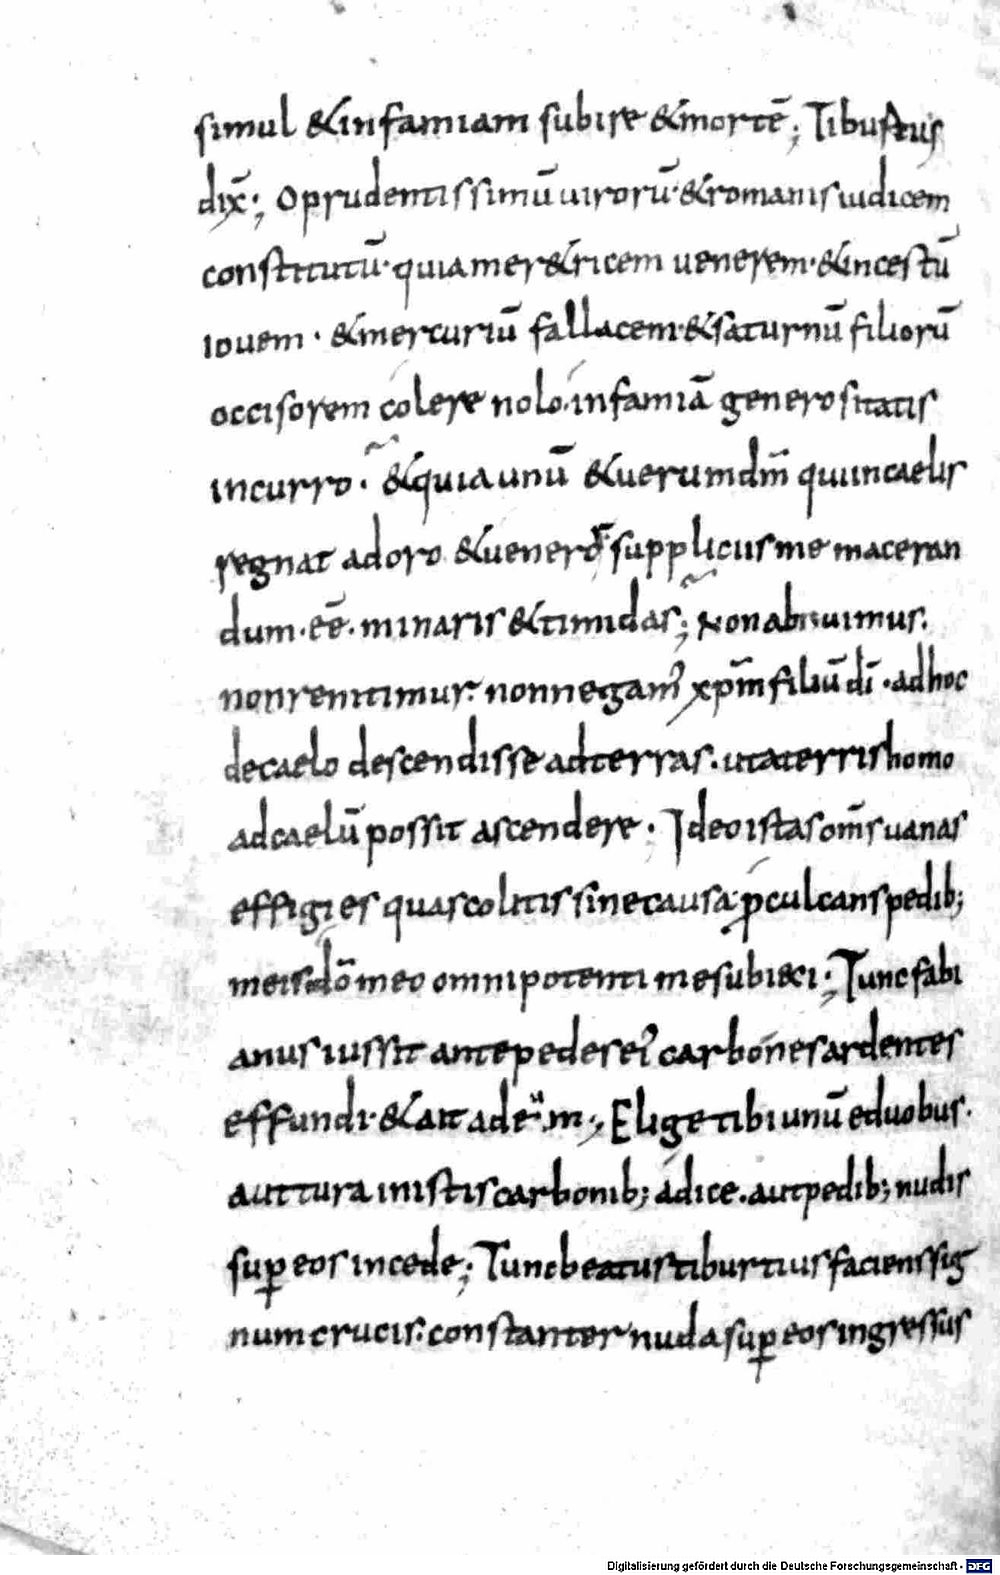 simul &infamiam subire &mortē; Tiburtius
dix̄; O prudentissimū uirorū·&romanis iudicem
constitutū· quia mer&ricem uenerem·&incestū
iouem · &mercuriū fallacem·&saturnū filiorū
occisorem colere nolo·infamiā generositatis
incurro · &quia unū &uerum dm̄ qui incaelis
regnat adoro &ueneror suppliciis me maceran
dum·eē·minaris &timidas; Non abnuimus.
non renitimur· non negam᾽ xp̄m filiū dī ·ad hoc
decaelo descendisse adterras·utaterris homo
adcaelū possit ascendere · Ideo istas om̄s uanas
effigies quas colitis sine causa ꝓculcans pedib;
meis dō meo omnipotenti me subieci; Tunc fabi
anus iussit ante pedes ei᾽ carbones ardentes
effundi·&ait ad eum; Elige tibi unū eduobus·
aut tura in istis carbonib; adice·aut pedib; nudis
suꝑ eos incede; Tunc beatus tiburtius faciens sig
num crucis·constanter nuda suꝑ eos ingressus
Digitalisierung gefördert durch die Deutsche Forschungsgemeinschaft - DFG